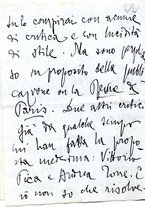 di critica e con lucidità
di stile. Ma sono perples
so in proposito della pubbli
cazione in la Revue de
Paris. Due altri critici,
già da qualche tempo
mi han fatta la propo
sta medesima: Vittorio
Pica e Zone. E
io non so che risolve